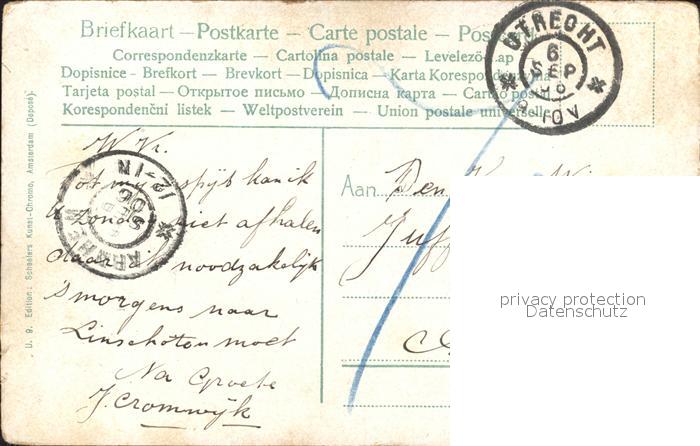 Briefkaart — Postkarte — Carte postale — Pos
Correspondenzkarte — Cartolina postale — Levelező Lap
Dopisnice - Brefkort — Brevkort — Dopisnica — Karta Korespondencyjna
Tarjeta postal — Открытое письмо — Дописна карта — Cartão postal
Korespondenční listek — Weltpostverein — Union postale universelle
UTRECHT
6
SEP
10 V
12-1N
U. 9. Edition: Schaefers Kunst-Chromo, Amsterdam (Deposé).
W. Kr.
Tot mijn spijt kan ik
U Zondag niet afhalen
daar ik noodzakelijk
's morgens naar
Linschoten moet
Na Groete
J. Cromwijk
Aan Den
Juff
privacy protection
Datenschutz